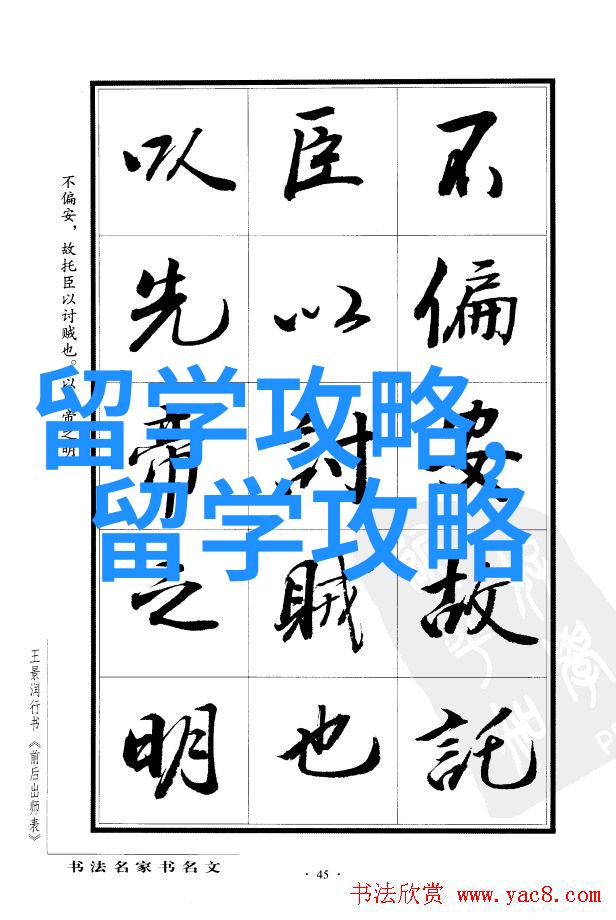 不偏安故託
臣以討賊也
以先帝之明
不偏安，故托臣以讨贼也。以
帝之明
留学攻略，
留学攻略
王景润行书《前后出师表》
书法名家书名文
· 45 ·
书法欣赏 www.yac8.com